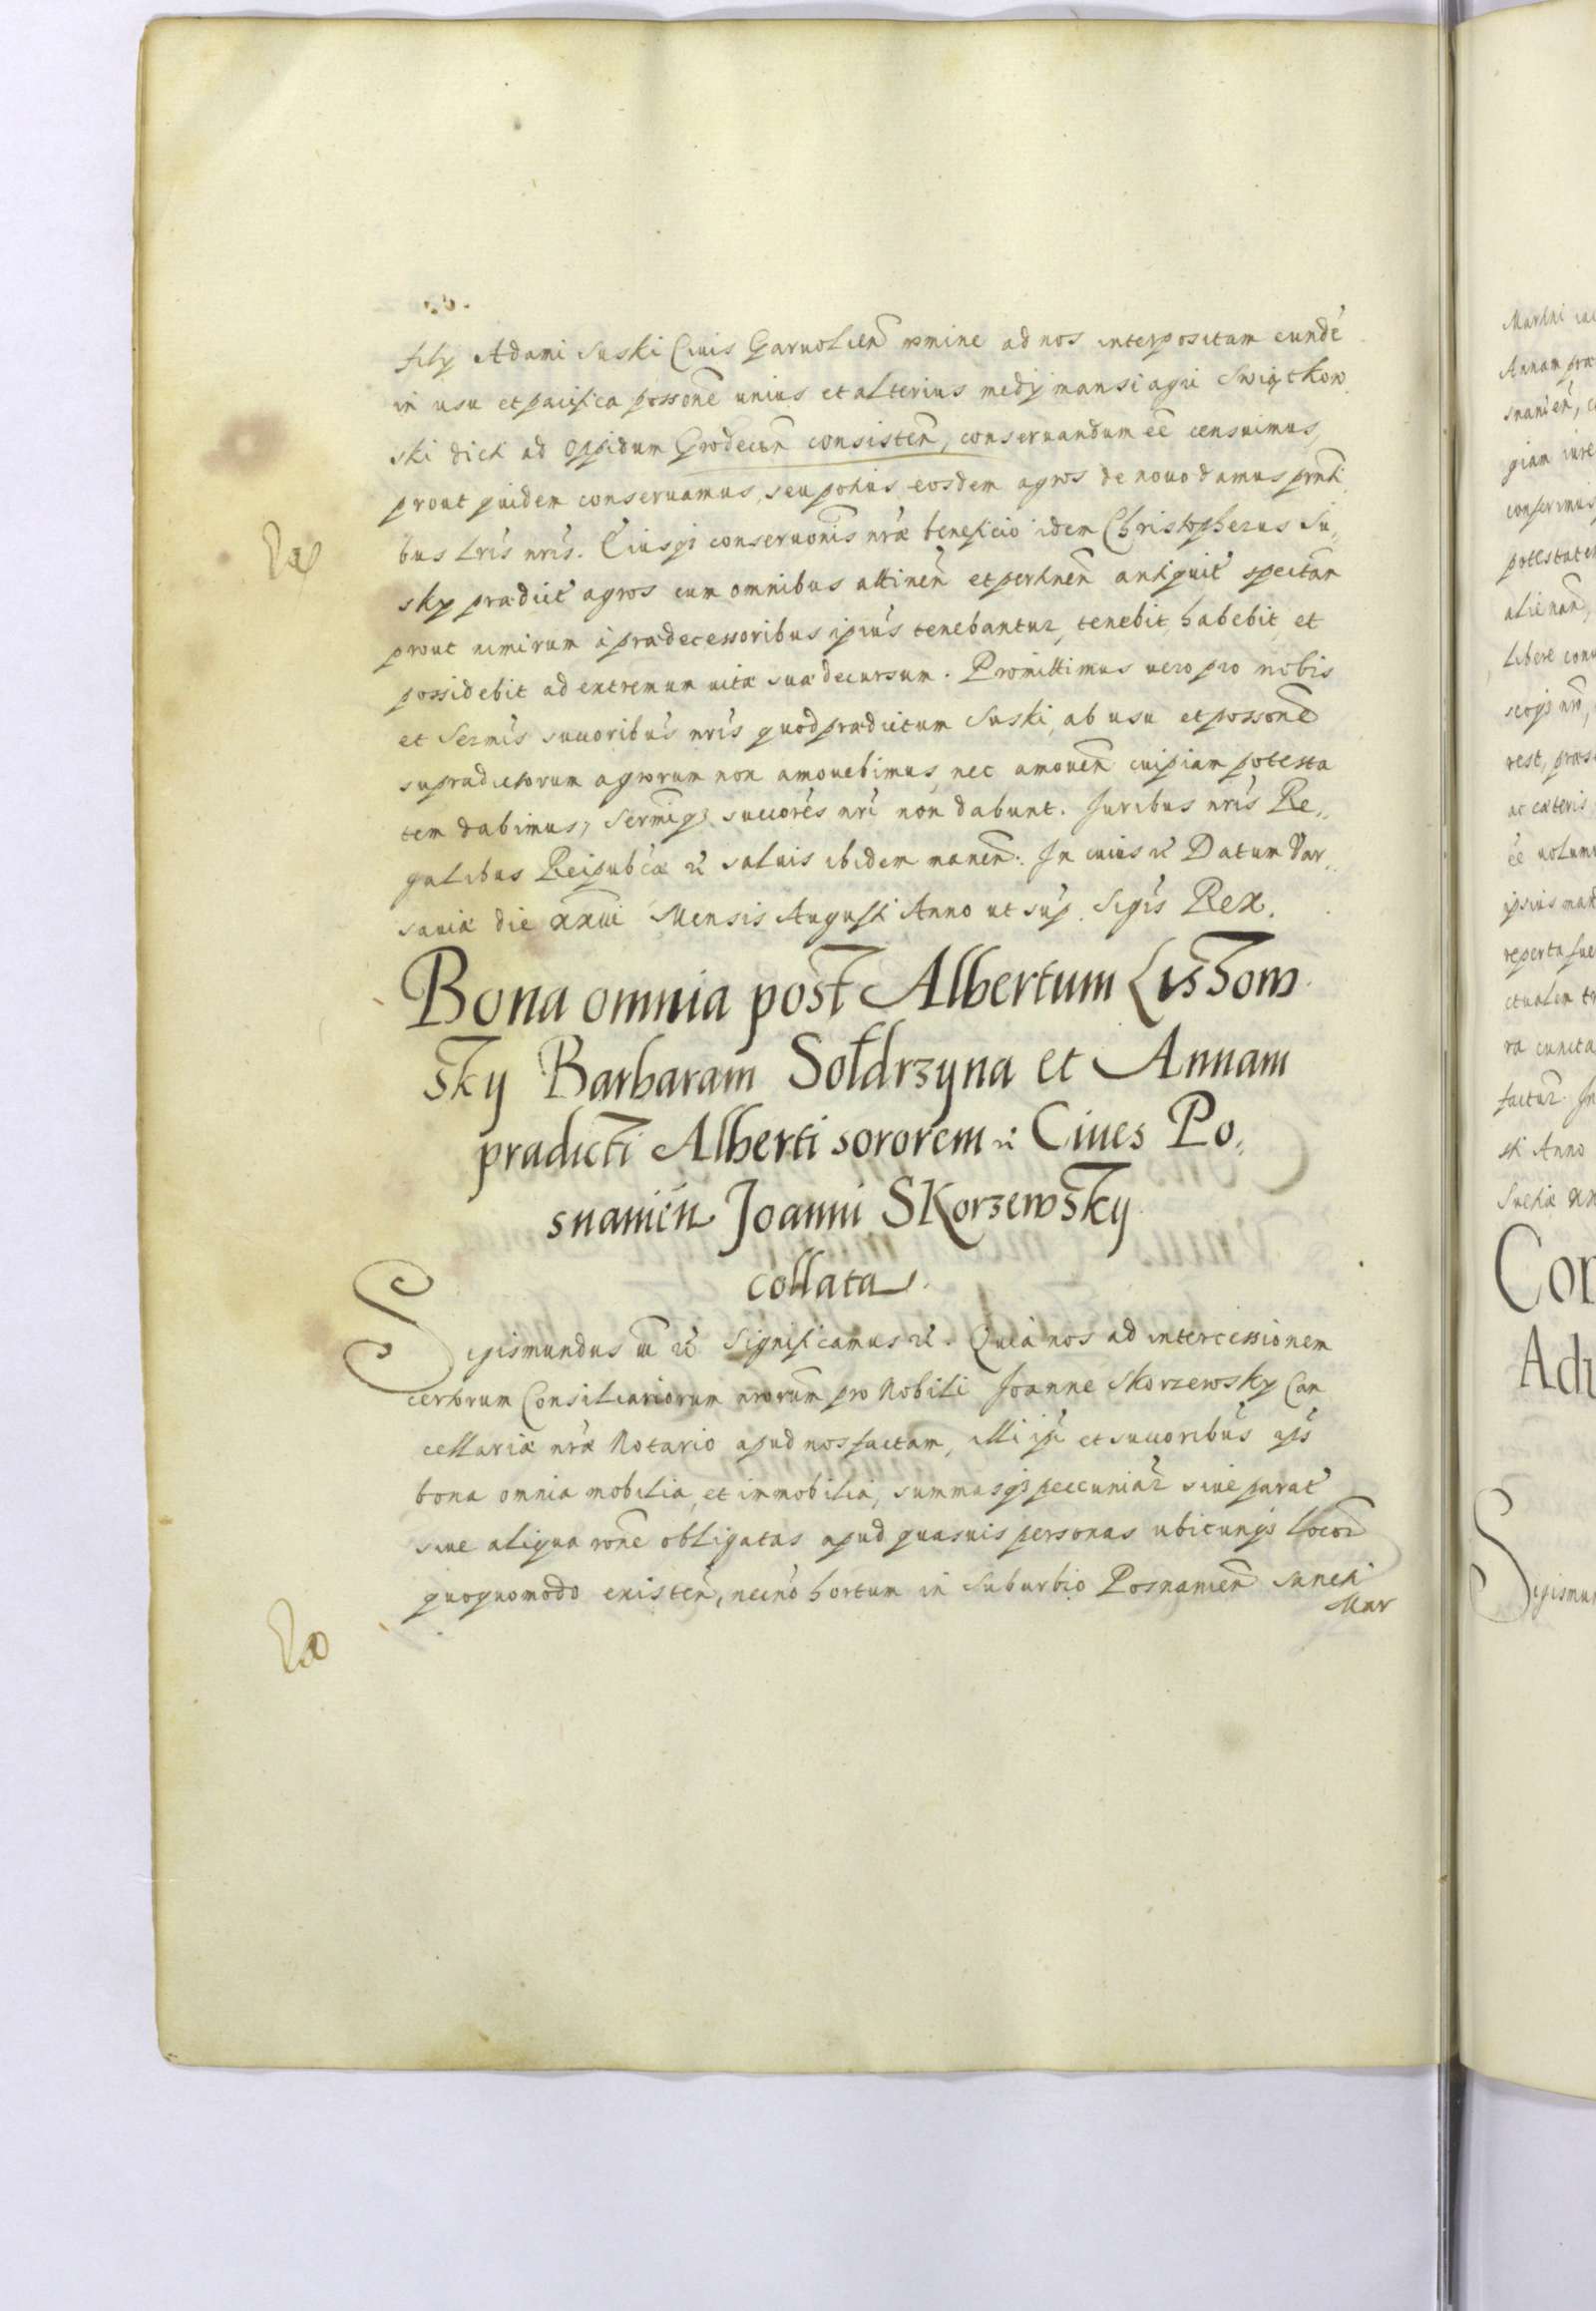 filij Adami Suski Ciuis Garuolien̄ nomine ad nos interpositam eundē
in usu et pacifica possonē unius et alterius medij mansi agri Swiątkow
ski dicti ad Oppidum Grodecen̄ consisten̄, conseruandum eē censuimus,
prout quidem conseruamus, seu potius eosdem agros de nouo damus pn̄ti
bus Lrīs nrīs. Cuiusqz conseruonis nrae beneficio idem Christopherus Su„
sky praedict̄ agros cum omnibus attinen̄ et pertinen̄ antiquit̄ spectan̄
prout nimirum à praedecessoribus ipius tenebantur, tenebit, habebit, et
possidebit ad extremum uitae suae decursum. Promittimus uero pro nobis
et Sermis succoribus nrīs quod praedictum Suski, ab usu et possonē
supradictorum agrorum non amouebimus, nec amouen̄ cuipiam potesta
tem dabimus, Sermiqz succorēs nrī non dabunt. Juribus nrīs Re„
galibus Reipubcae etc̄ saluis ibidem manen̄. In cuius etc̄ Datum Var„
sauiae die xxvii Mensis Augusti Anno ut sup. Sigis Rex.
Bona omnia post Albertum Lissow
sky Barbaram Sołdrzyna et Annam
praedicti Alberti sororem etc̄ Ciues Po„
snanien̄ Joanni Skorzewsky
collata.
Sigismundus iii etc̄ Significamus etc̄. Quia nos ad intercessionem
certorum Consiliariorum nrorum pro Nobili Joanne Skorzewsky Can
cellariae nrae Notario apud nos factam, illi ipi et succoribus ejs
bona omnia mobilia, et immobilia, summasqz peccuniar̄ siue parat̄
siue aliqua ronē obligatas apud quasuis personas ubicunqz locor̄
quoquomodo existen̄, necnō hortum in Suburbio Posnanien̄ Sancti
Mar
Martini
Annam prae
snanien̄,
giam iure
conferimus
potestatem
alienan̄,
Libere
rest,
ac caeteris
eē uolumus
reperta fue
ra cuncta
factur̄. In
sti Anno
Sueciae
Con
Adu
Sigismun